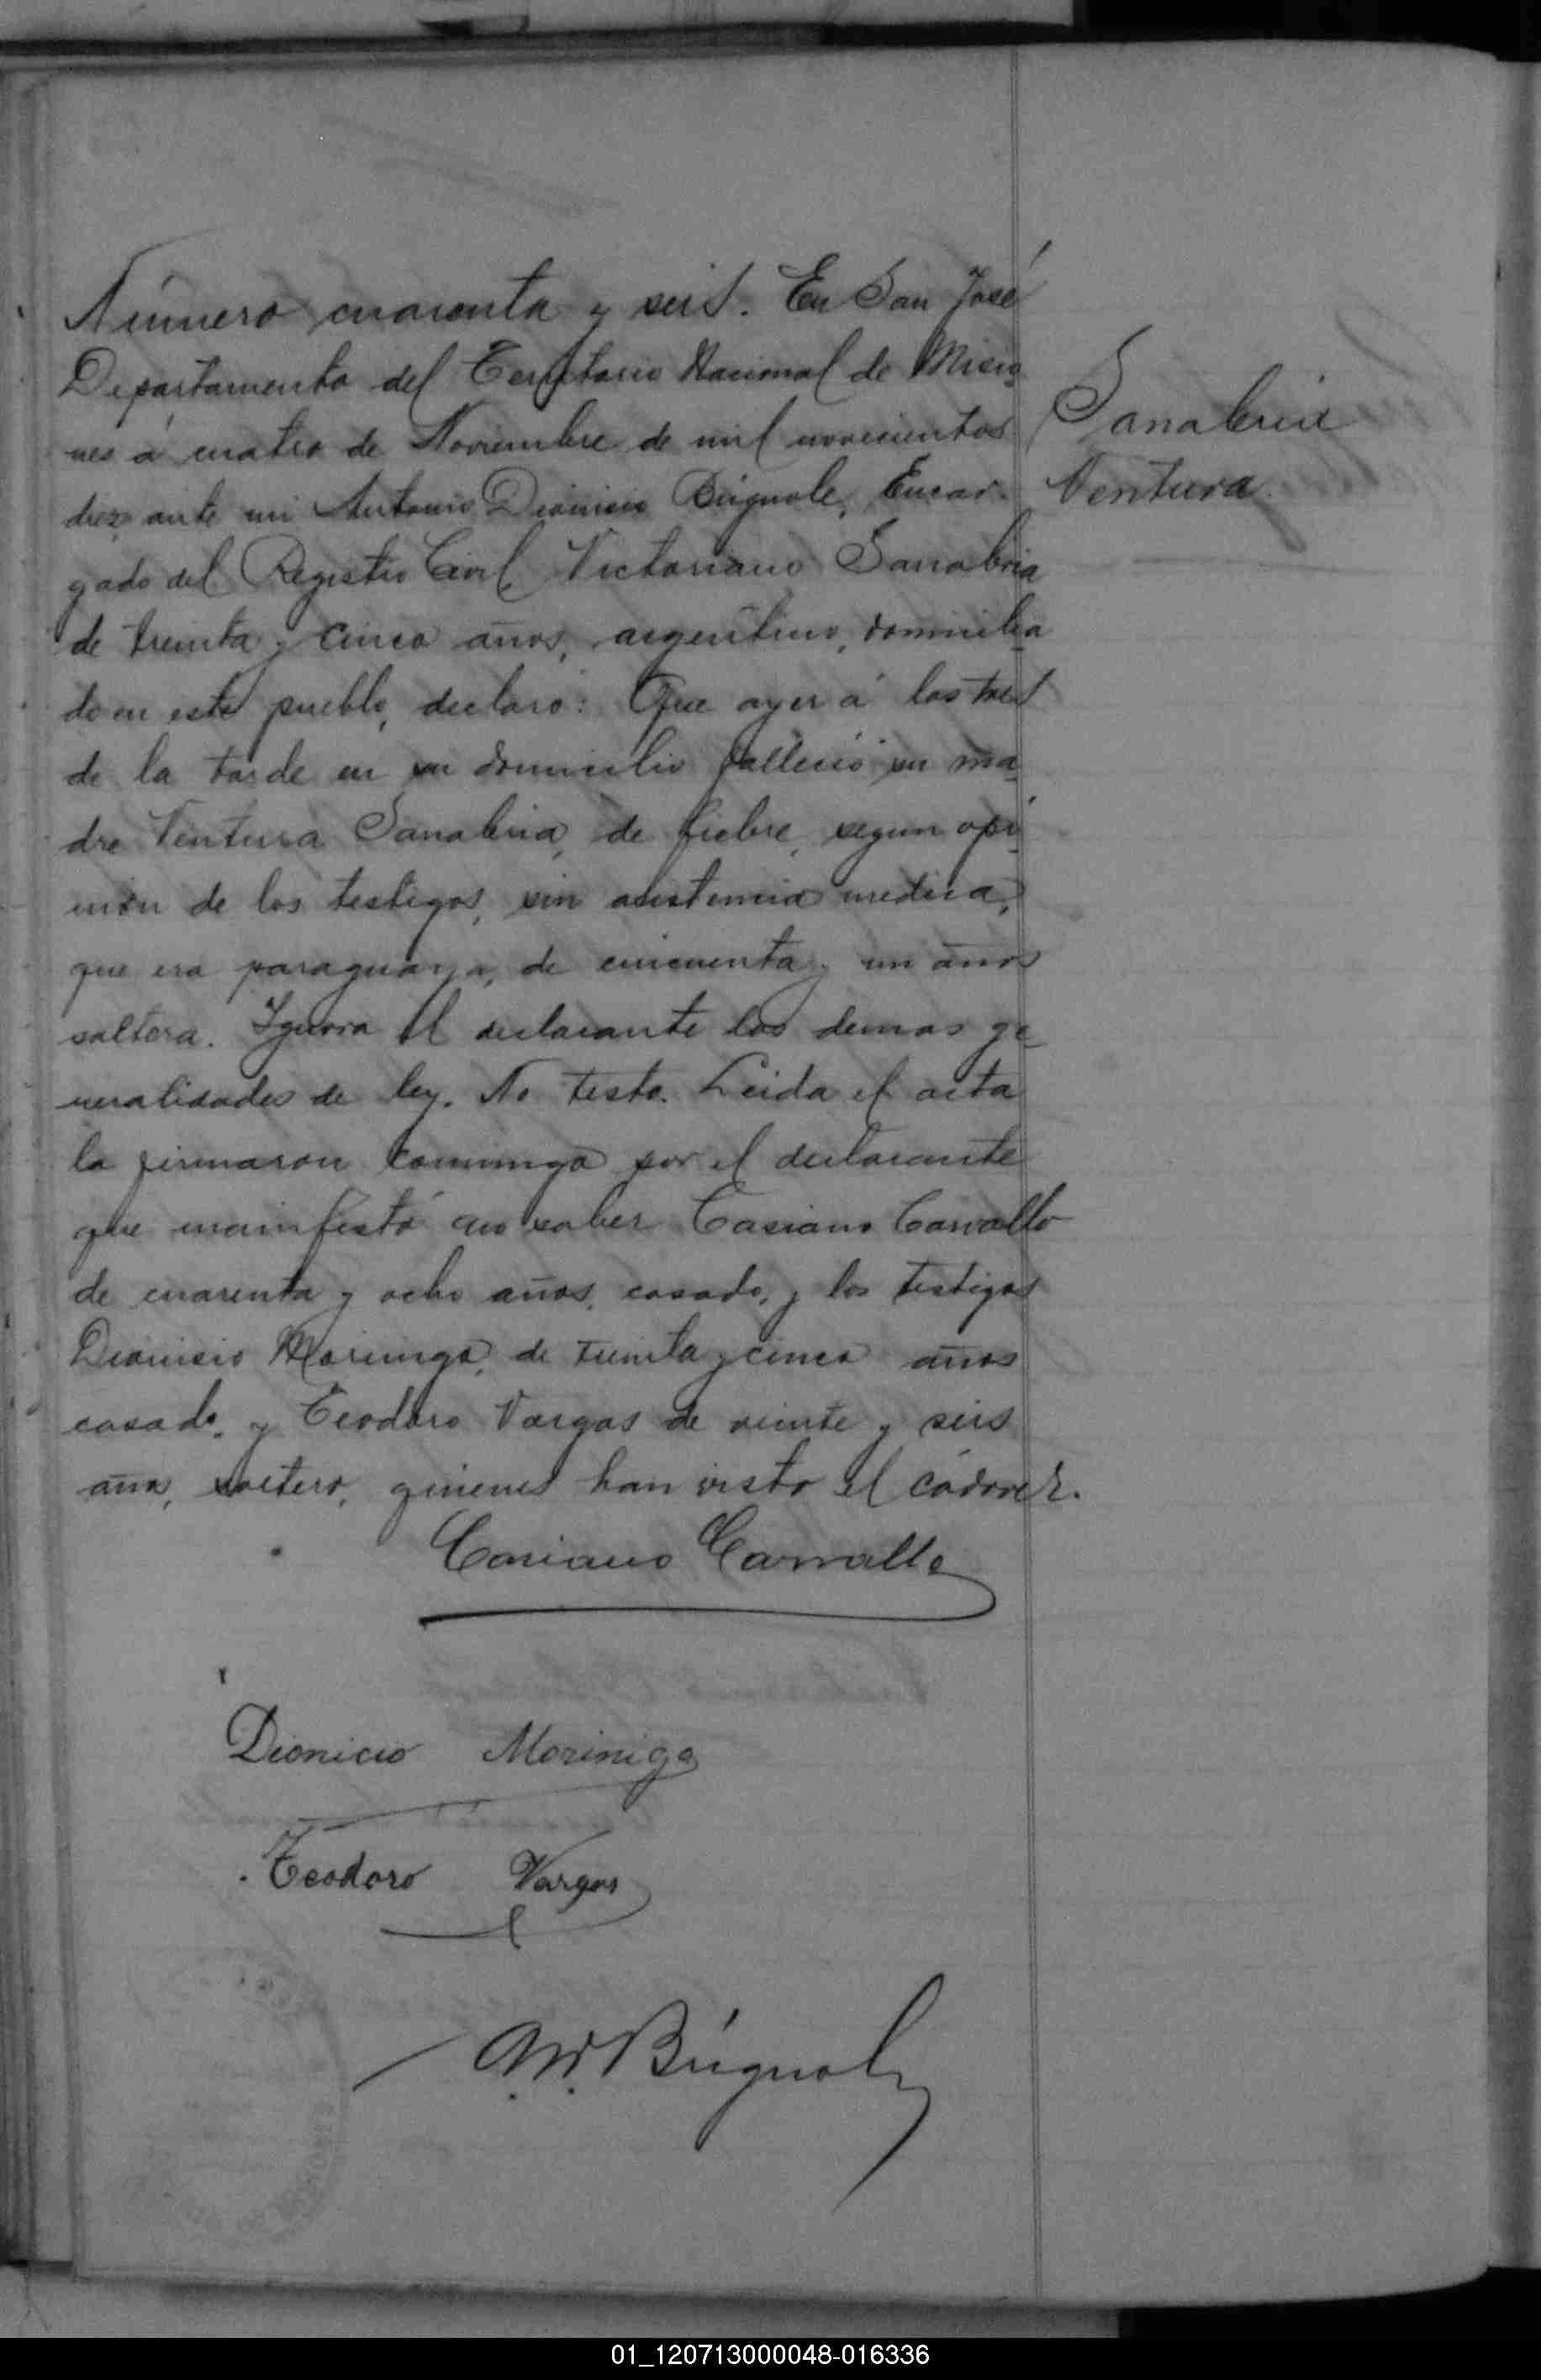 Número cuarenta y seis. En San José
Departamento del Territorio Nacional de Misio_
nes á cuatro de Noviembre de mil novecientos
diez, ante mi Antonio Dionisio Búgnole, Encar-
gado del Registro Civil, Victoriano Sanabria
de treinta y cinco años, argentino, domicilia_
do en este pueblo, declaró: Que ayer á las tres
de la tarde en su domicilio falleció su ma_
dre Ventura Sanabria, de fiebre, segun opi_
nión de los testigos, sin asistencia medica,
que era paraguaya, de cincuenta y un años
soltera. Ignora el declarante las demas ge_
neralidades de ley. No testo. Leida el acta
la firmaron conmigo por el declarante
que manifestó no saber Casiano Carvallo
de cuarenta y ocho años, casado, y los testigos
Dionisio Morinigo, de treinta y cinco años
casado, y Teodoro Vargas de veinte y seis
años, soltero, quienes han visto el cádaver.
Casiano Carvallo
Dionicio Morinigo
Teodoro Vargas
A. D. Búgnole
Sanabria
Ventura
01_120713000048-016336